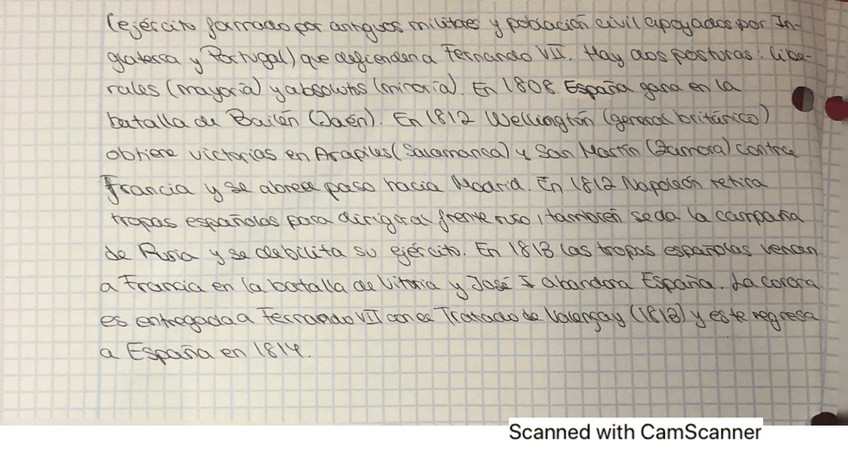 (ejército formado por antiguos militares y población civil apoyados por In-
glaterra y Portugal) que defienden a Fernando VII. Hay dos posturas: libe-
rales (mayoría) y absolutis (minoría). En 1808 España gana en la
batalla de Bailén (Jaén). En 1812 Wellington (general británico)
obtiene victorias en Arapiles (Salamanca) y San Martín (Zamora) contra
Francia y se abre paso hacia Madrid. En 1812 Napoleón retira
tropas españolas para dirigir al frente ruso, también se da la campaña
de Rusia y se debilita su ejército. En 1813 las tropas españolas vencen
a Francia en la batalla de Vitoria y José I abandona España. La corona
es entregada a Fernando VII con el Tratado de Valençay (1813) y este regresa
a España en 1814.
Scanned with CamScanner